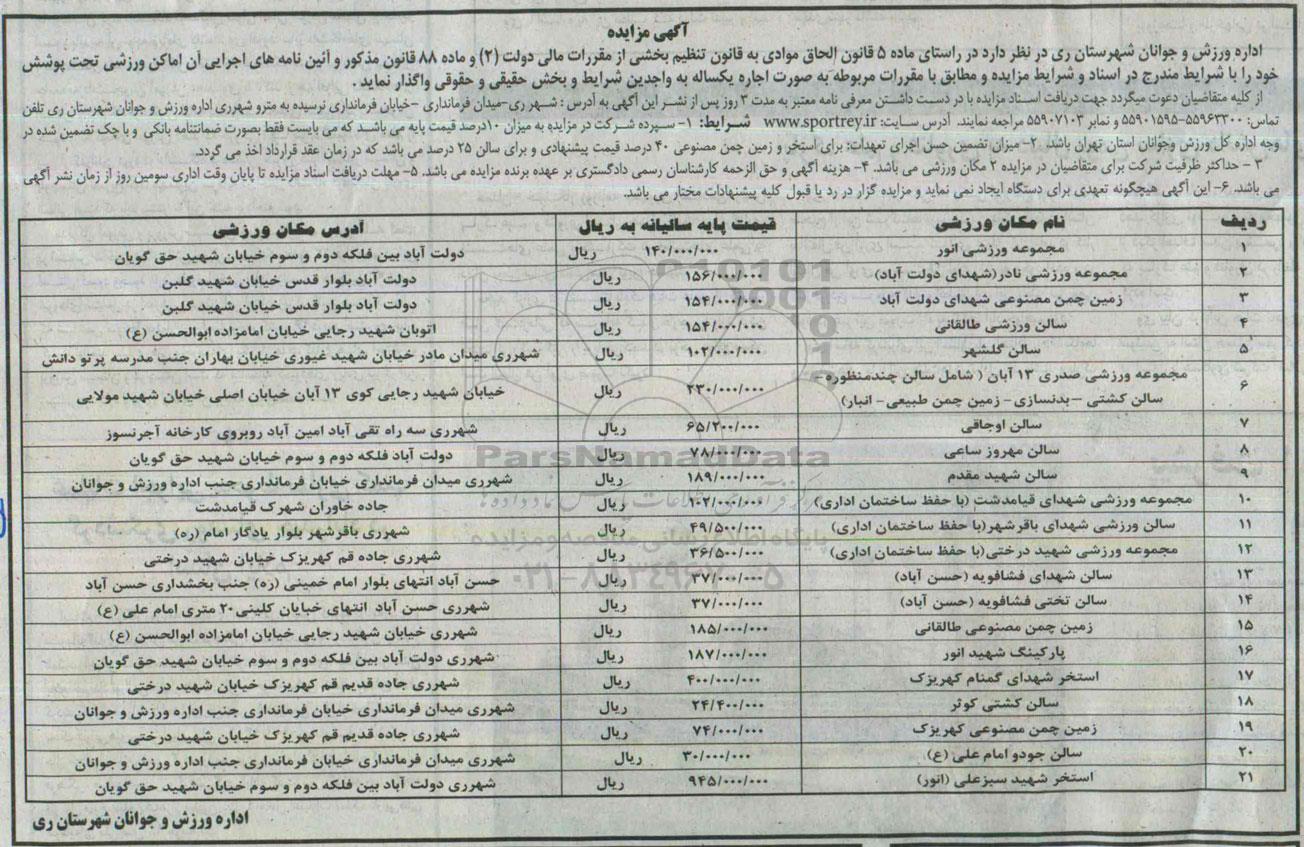 آگهی مزایده
اداره ورزش و جوانان شهرستان ری در نظر دارد در راستای ماده ۵ قانون الحاق موادی به قانون تنظیم بخشی از مقررات مالی دولت (۲) و ماده ۸۸ قانون مذکور و آئین نامه های اجرایی آن اماکن ورزشی تحت پوشش
خود را با شرایط مندرج در اسناد و شرایط مزایده و مطابق با مقررات مربوطه به صورت اجاره یکساله به واجدین شرایط و بخش حقیقی و حقوقی واگذار نماید.
از کلیه متقاضیان دعوت میگردد جهت دریافت اسناد مزایده با در دست داشتن معرفی نامه معتبر به مدت ۳ روز پس از نشر این آگهی به آدرس : شهر ری-میدان فرمانداری -خیابان فرمانداری نرسیده به مترو شهرری اداره ورزش و جوانان شهرستان ری تلفن
تماس: ۵۵۹۶۳۳۰۰-۵۵۹۰۱۵۹۵ و نمابر ۵۵۹۰۷۱۰۳ مراجعه نمایند. آدرس سایت: www.sportrey.ir شرایط: ۱- سپرده شرکت در مزایده به میزان ۱۰درصد قیمت پایه می باشد که می بایست فقط بصورت ضمانتنامه بانکی و یا چک تضمین شده در
وجه اداره کل ورزش وجوانان استان تهران باشد. ۲-میزان تضمین حسن اجرای تعهدات: برای استخر و زمین چمن مصنوعی ۴۰ درصد قیمت پیشنهادی و برای سالن ۲۵ درصد می باشد که در زمان عقد قرارداد اخذ می گردد.
۳ - حداکثر ظرفیت شرکت برای متقاضیان در مزایده ۲ مکان ورزشی می باشد. ۴- هزینه آگهی و حق الزحمه کارشناسان رسمی دادگستری بر عهده برنده مزایده می باشد. ۵- مهلت دریافت اسناد مزایده تا پایان وقت اداری سومین روز از زمان نشر آگهی
می باشد. ۶- این آگهی هیچگونه تعهدی برای دستگاه ایجاد نمی نماید و مزایده گزار در رد یا قبول کلیه پیشنهادات مختار می باشد.
ردیف نام مکان ورزشی قیمت پایه سالیانه به ریال آدرس مکان ورزشی
۱ مجموعه ورزشی انور ۱۴۰/۰۰۰/۰۰۰ ریال دولت آباد بین فلکه دوم و سوم خیابان شهید حق گویان
۲ مجموعه ورزشی نادر(شهدای دولت آباد) ۱۵۶/۰۰۰/۰۰۰ ریال دولت آباد بلوار قدس خیابان شهید گلبن
۳ زمین چمن مصنوعی شهدای دولت آباد ۱۵۴/۰۰۰/۰۰۰ ریال دولت آباد بلوار قدس خیابان شهید گلبن
۴ سالن ورزشی طالقانی ۱۵۴/۰۰۰/۰۰۰ ریال اتوبان شهید رجایی خیابان امامزاده ابوالحسن (ع)
۵ سالن گلشهر ۱۰۲/۰۰۰/۰۰۰ ریال شهرری میدان مادر خیابان شهید غیوری خیابان بهاران جنب مدرسه پرتو دانش
۶ مجموعه ورزشی صدری ۱۳ آبان ( شامل سالن چندمنظوره-
سالن کشتی -بدنسازی- زمین چمن طبیعی- انبار) ۲۳۰/۰۰۰/۰۰۰ ریال خیابان شهید رجایی کوی ۱۳ آبان خیابان اصلی خیابان شهید مولایی
۷ سالن اوجاقی ۶۵/۲۰۰/۰۰۰ ریال شهرری سه راه تقی آباد امین آباد روبروی کارخانه آجرنسوز
۸ سالن مهروز ساعی ۷۸/۰۰۰/۰۰۰ ریال دولت آباد فلکه دوم و سوم خیابان شهید حق گویان
۹ سالن شهید مقدم ۱۸۹/۰۰۰/۰۰۰ ریال شهرری میدان فرمانداری خیابان فرمانداری جنب اداره ورزش و جوانان
۱۰ مجموعه ورزشی شهدای قیامدشت (با حفظ ساختمان اداری) ۱۰۲/۰۰۰/۰۰۰ ریال جاده خاوران شهرک قیامدشت
۱۱ سالن ورزشی شهدای باقرشهر(با حفظ ساختمان اداری) ۴۹/۵۰۰/۰۰۰ ریال شهرری باقرشهر بلوار یادگار امام (ره)
۱۲ مجموعه ورزشی شهید درختی(با حفظ ساختمان اداری) ۳۶/۵۰۰/۰۰۰ ریال شهرری جاده قم کهریزک خیابان شهید درختی
۱۳ سالن شهدای فشافویه (حسن آباد) ۳۷/۰۰۰/۰۰۰ ریال حسن آباد انتهای بلوار امام خمینی (ره) جنب بخشداری حسن آباد
۱۴ سالن تختی فشافویه (حسن آباد) ۳۷/۰۰۰/۰۰۰ ریال شهرری حسن آباد انتهای خیابان کلینی ۲۰ متری امام علی (ع)
۱۵ زمین چمن مصنوعی طالقانی ۱۸۵/۰۰۰/۰۰۰ ریال شهرری خیابان شهید رجایی خیابان امامزاده ابوالحسن (ع)
۱۶ پارکینگ شهید انور ۱۸۷/۰۰۰/۰۰۰ ریال شهرری دولت آباد بین فلکه دوم و سوم خیابان شهید حق گویان
۱۷ استخر شهدای گمنام کهریزک ۴۰۰/۰۰۰/۰۰۰ ریال شهرری جاده قدیم قم کهریزک خیابان شهید درختی
۱۸ سالن کشتی کوثر ۲۴/۴۰۰/۰۰۰ ریال شهرری میدان فرمانداری خیابان فرمانداری جنب اداره ورزش و جوانان
۱۹ زمین چمن مصنوعی کهریزک ۷۴/۰۰۰/۰۰۰ ریال شهرری جاده قدیم قم کهریزک خیابان شهید درختی
۲۰ سالن جودو امام علی (ع) ۳۰/۰۰۰/۰۰۰ ریال شهرری میدان فرمانداری خیابان فرمانداری جنب اداره ورزش و جوانان
۲۱ استخر شهید سبزعلی (انور) ۹۴۵/۰۰۰/۰۰۰ ریال شهرری دولت آباد بین فلکه دوم و سوم خیابان شهید حق گویان
اداره ورزش و جوانان شهرستان ری
ParsNamadData
پایگاه اطلاع رسانی مناقصه و مزایده